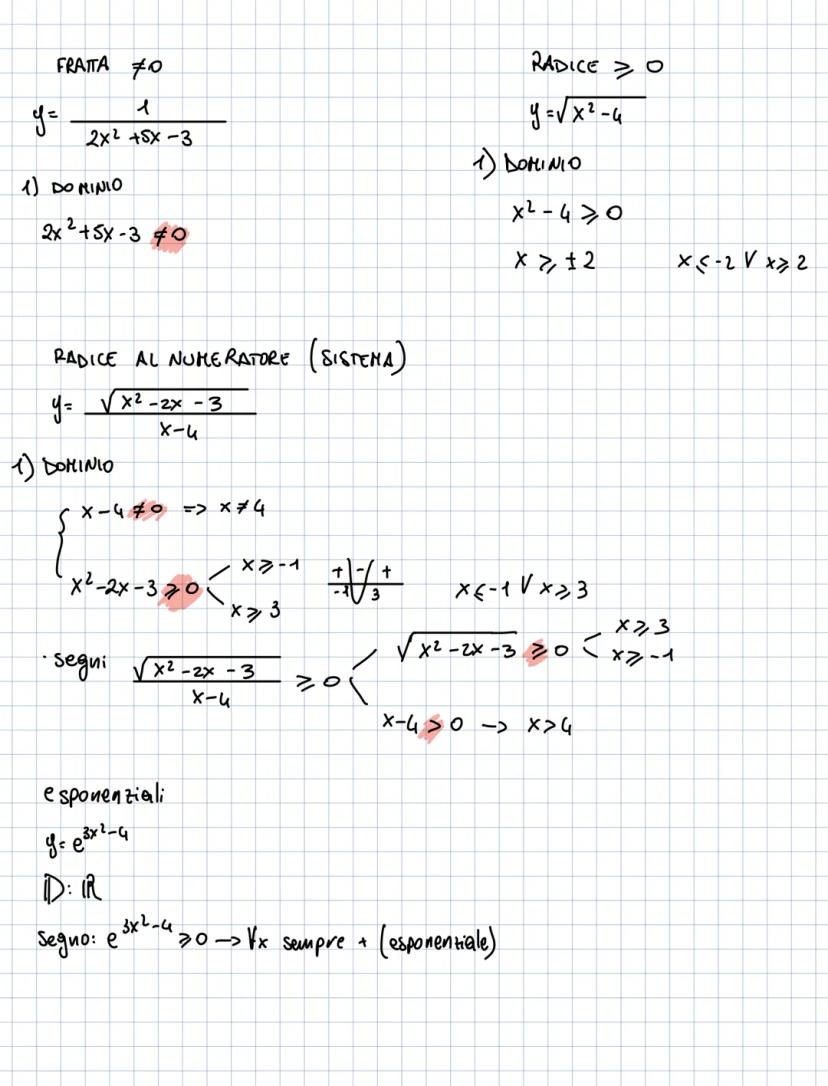 FRATTA ≠0
y= 1 / (2x² +5x -3)
1) DOMINIO
2x²+5x-3 ≠0
RADICE ⩾ 0
y=√(x²-4)
1) DOMINIO
x²-4⩾0
x ⩾ ±2 x⩽-2 V x⩾2
RADICE AL NUMERATORE (SISTEMA)
y= √(x²-2x-3) / (x-4)
1) DOMINIO
{ x-4≠0 => x≠4
x²-2x-3⩾0 < x⩾-1 x⩾3 + - + -1 3 x⩽-1 V x⩾3
· segni √(x²-2x-3) / (x-4) ⩾0 < √(x²-2x-3) ⩾0 < x⩾3 x⩾-1
x-4>0 -> x>4
esponenziali
y= e^(3x²-4)
D: ℝ
segno: e^(3x²-4) ⩾0 -> ∀x sempre + (esponenziale)